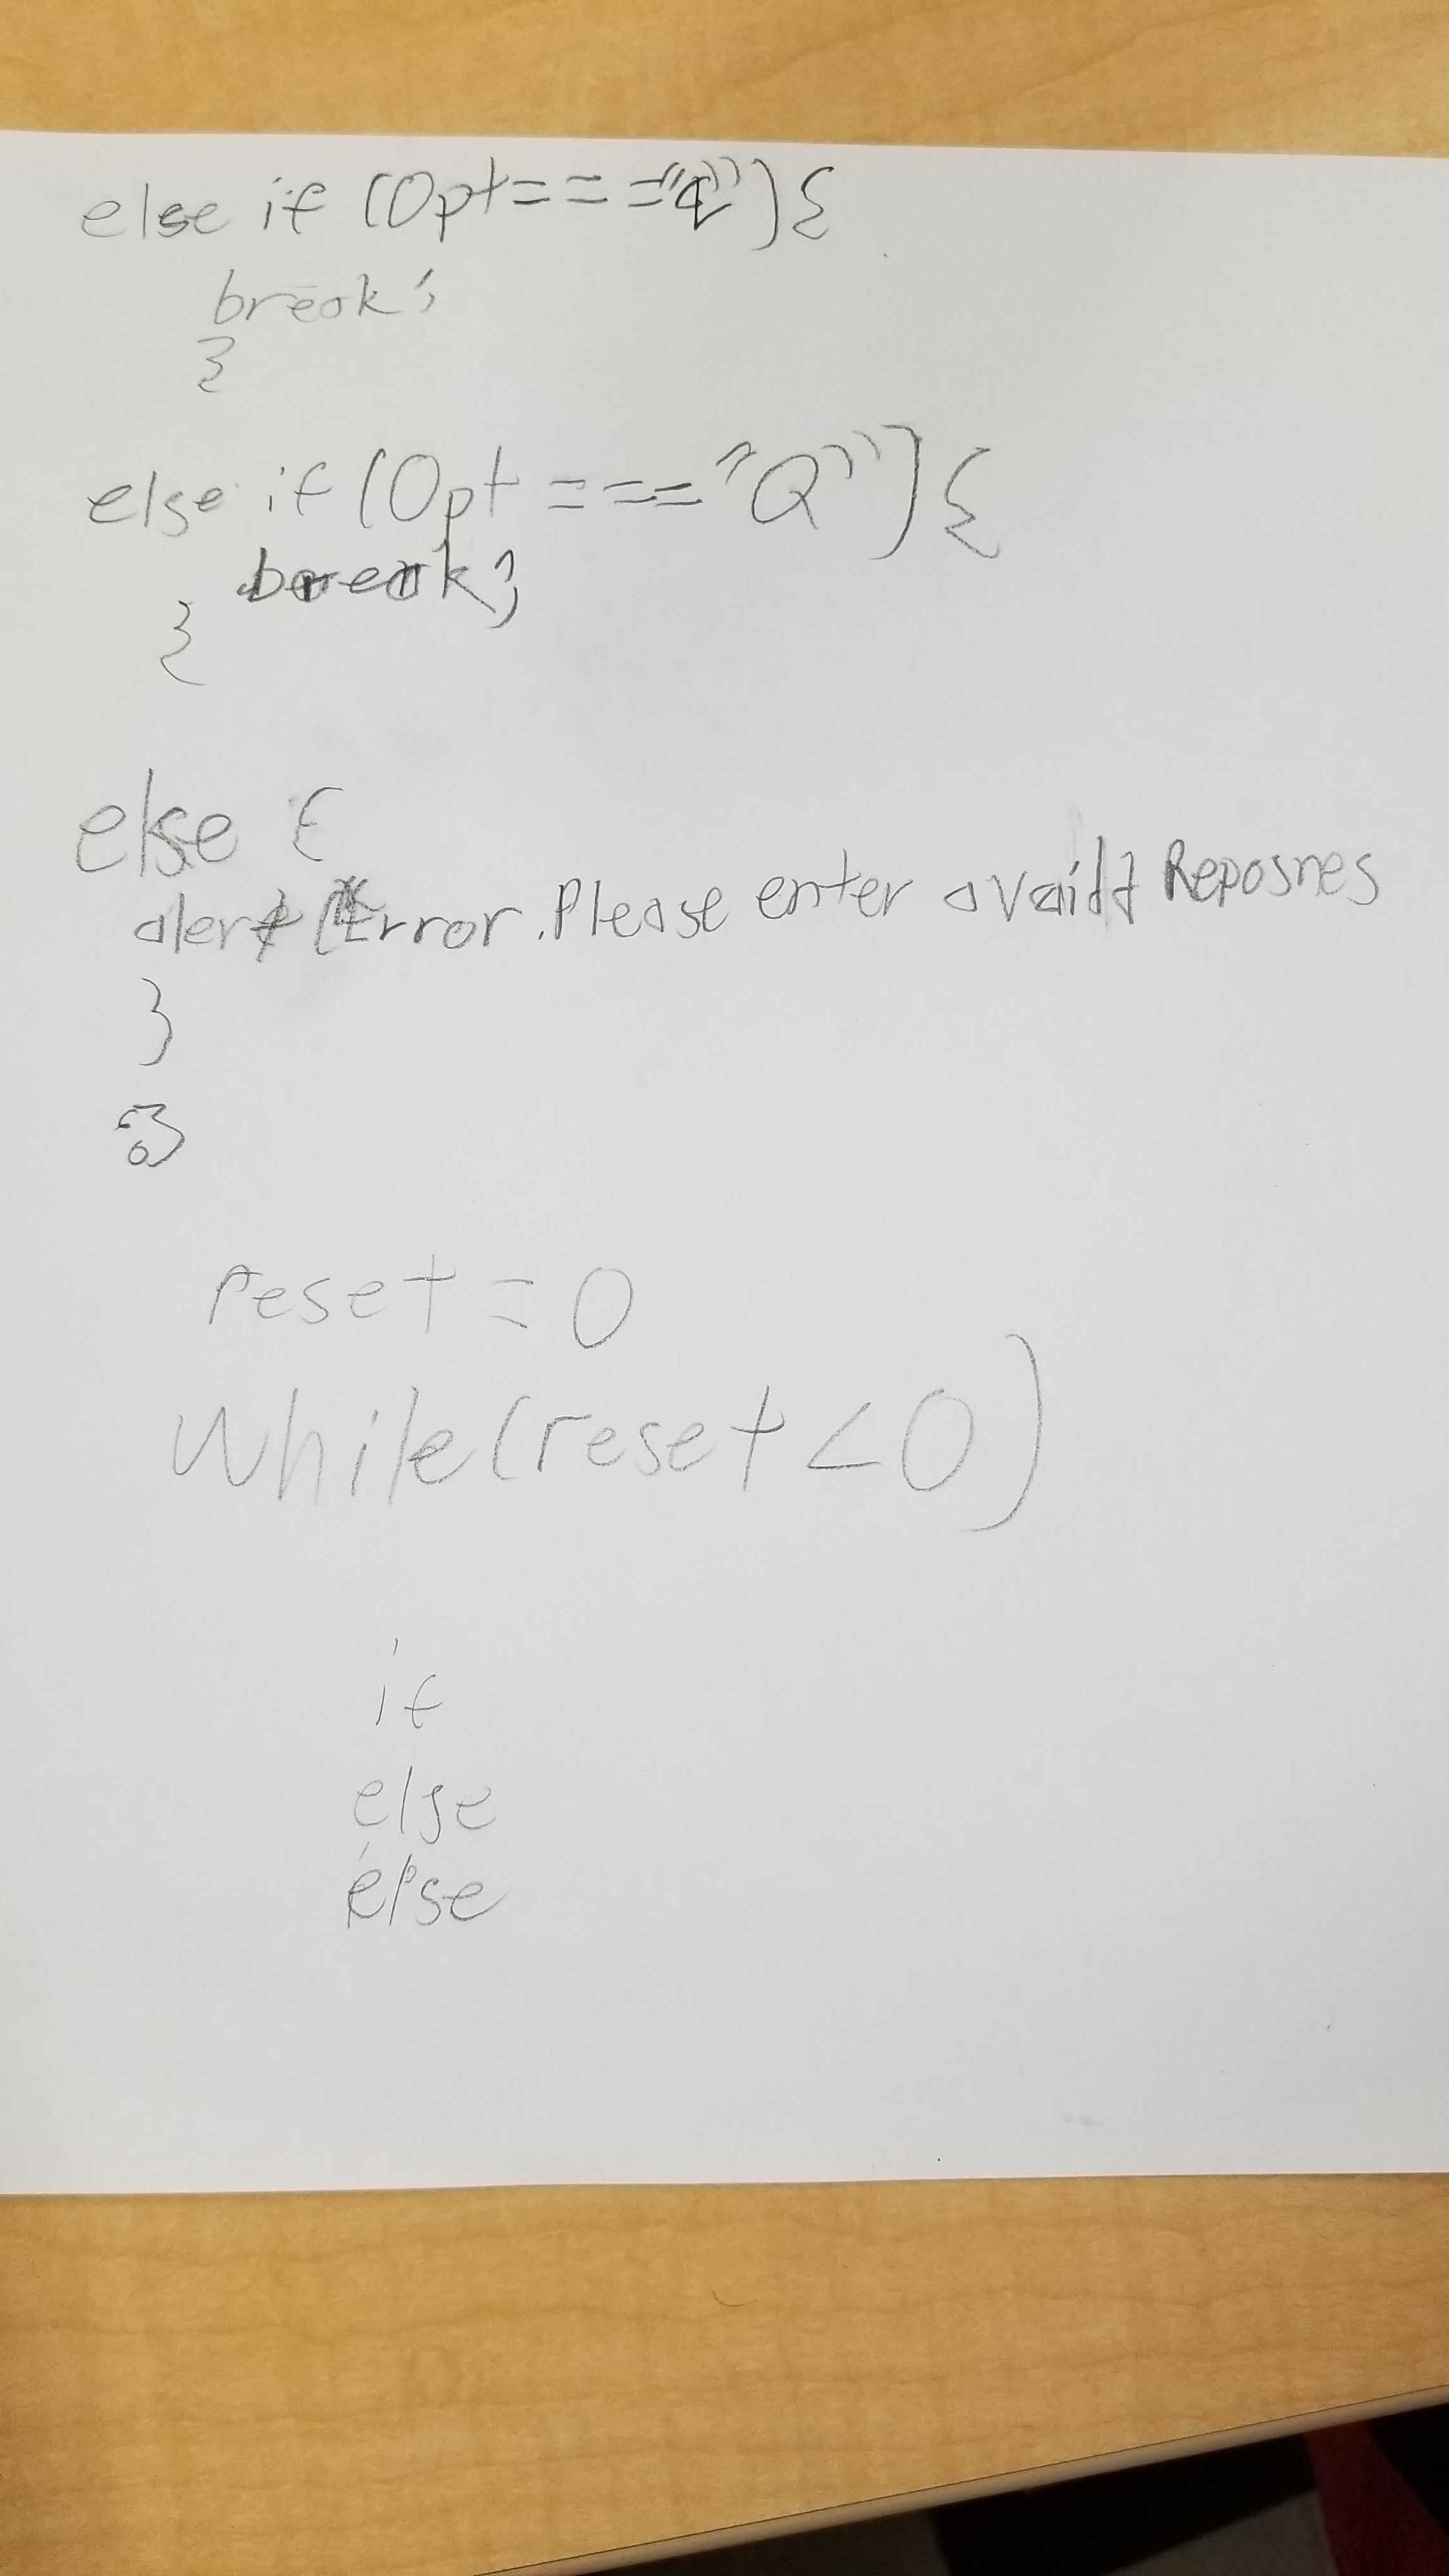 else if (Opt==="q"){
break;
}
else if (Opt ==="Q"){
break;
}
else {
alert("Error. Please enter a vaild Reposnes
}
}
reset = 0
while(reset<0)
if
else
else